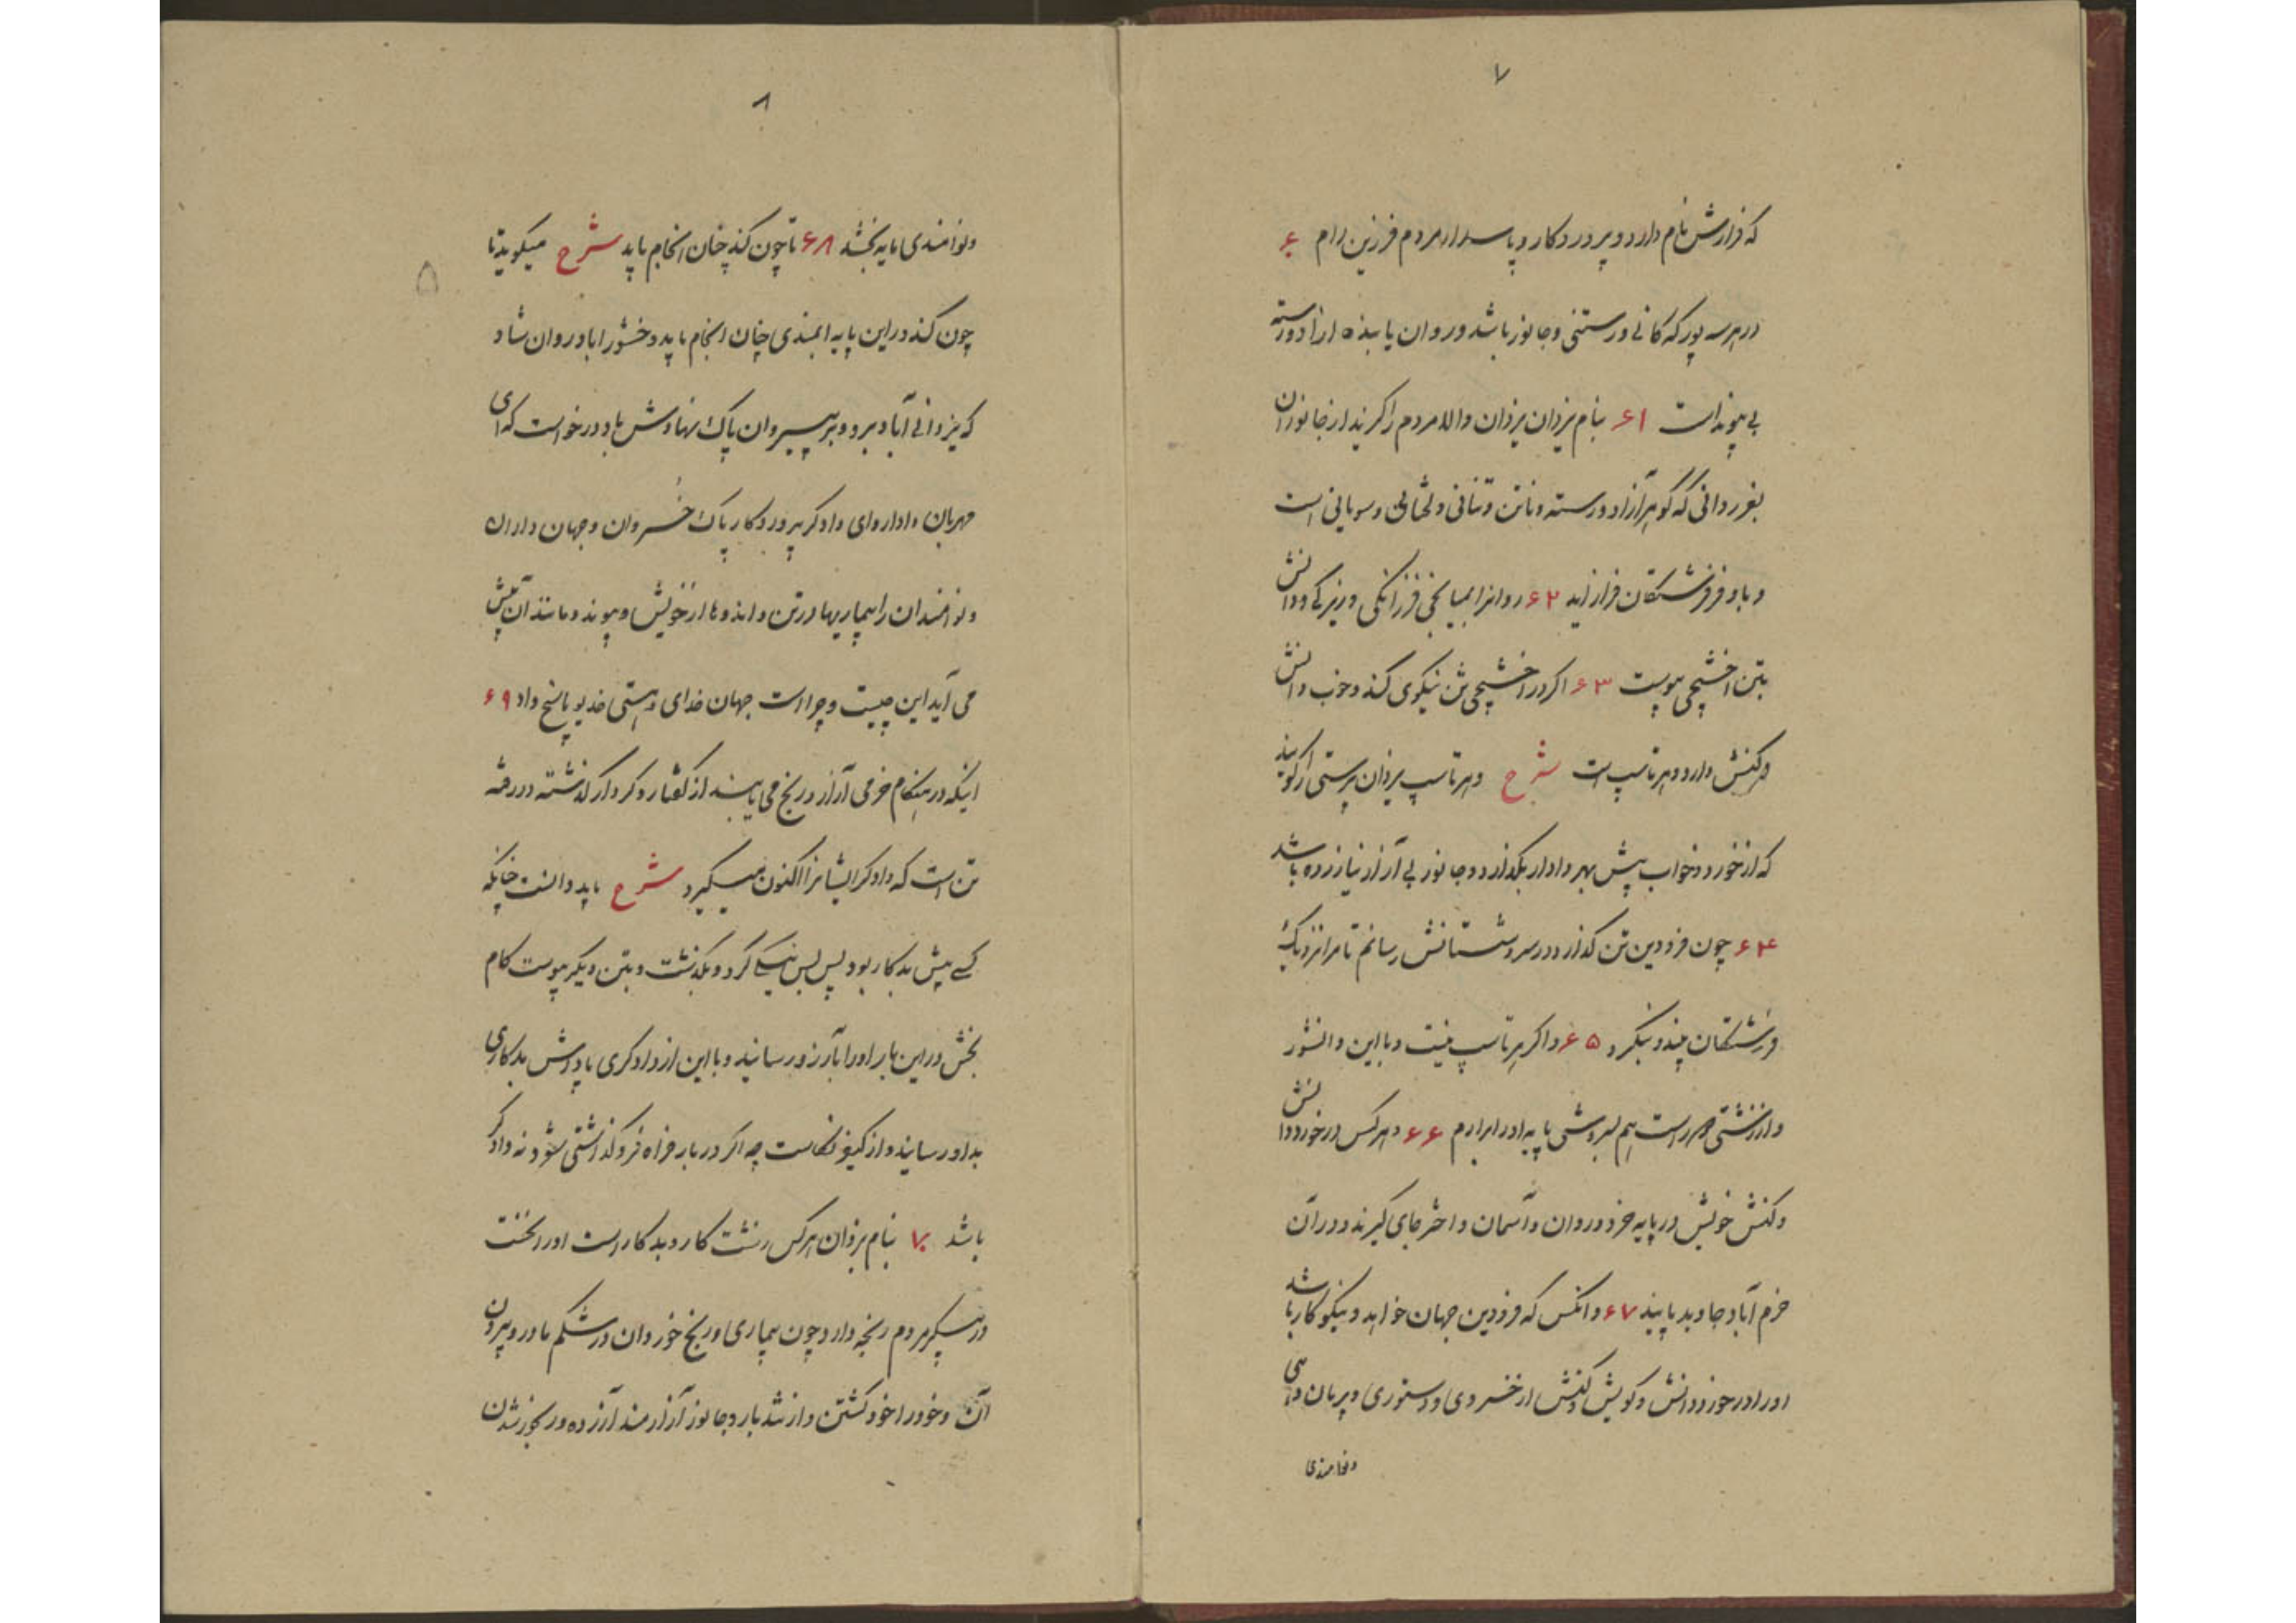 ۷
که فرازش نام دارد و پروردگار و پاسدار مردم فرزین رام ۶۰
در هر سه پور که کانی و رستنی و جانور باشد و روان یابنده آزاد ورسته
بی پیوند است ۶۱ بنام یزدان یزدان والا مردم را گزید از جانوران
بغز روانی که گوهر آزاد ورسته و ناتن و تنانی و است
و باو فر فرشتگان فزاید ۶۲ روانرا بمیانجی فرزانگی و زیرکی و دانش
بتن آخشیجی پیوست ۶۳ اگر در آخشیجی تن نیکوی کند و خوب دانش
و کنش دارد و هرتاسپ است شرح و هرتاسپ یزدان پرستی را گویند
که از خورد و خواب پیش بهر دادار بگذارد و جانور بی آزار نیازرده باشد
۶۴ چون فرودین تن گذارد در سروشستانش رسانم تا مرا نزدیک
فرشتگان بیند و نگرد ۶۵ و اگر هرتاسپ نیست و با این دانشور
و از زشتی دور است هم بسروشی پایه او را برارم ۶۶ و هر کس در خور دانش
و کنش خویش در پایه خرد و روان و آسمان و اختر جای گیرند و در آن
خرم آباد جاوید پایند ۶۷ و انکس که فرودین جهان خواهد و نیکوکار باشد
او را در خور دانش و گویش و کنش از خسروی و دستوری و
و نوامندی
۸
و نوامندی پایه بخشد ۶۸ تا چون کند چنان انجام یابد شرح میگوید تا
چون کند در این پایه چنان انجام یابد وخشور اباد بر روان شاد
که یزدانی آباد برو و بر پیروان پاک نهادش باد درخواست که ای
مهربان دادار و ای دادگر پروردگار پاک خسروان و جهان داران
و نوامندان را بیماریها در تن و اندوها از خویش و پیوند و مانند آن پیش
می آید این چیست و چرا است جهان خدای و هستی خدیو پاسخ داد ۶۹
اینکه در هنگام خرمی آزار و رنج می یابند از گفتار و کردار گذشته و رفته
تن است که دادگر ایشانرا اکنون میگیرد شرح باید دانست چنانکه
کسے پیش بدکار بود پس نیکی کرد و بگذشت و بتن دیگر پیوست کام
بخش در این بار او را بآرزو رسانید و با این از دادگری پادش بدکاری
بداو رساند و از نکاست چه اگر در باد فراه فروگذاشتی شود نه دادگر
باشد ۷۰ بنام یزدان هر کس زشت کار و بدکار است او را نخست
در پیکر مردم رنجه دارد چون بیماری و رنج خوردان در شکم مادر و بیرون
آن و خود را خود کشتن و از تند بار و جانور آزارمند آزرده و رنجور شدن